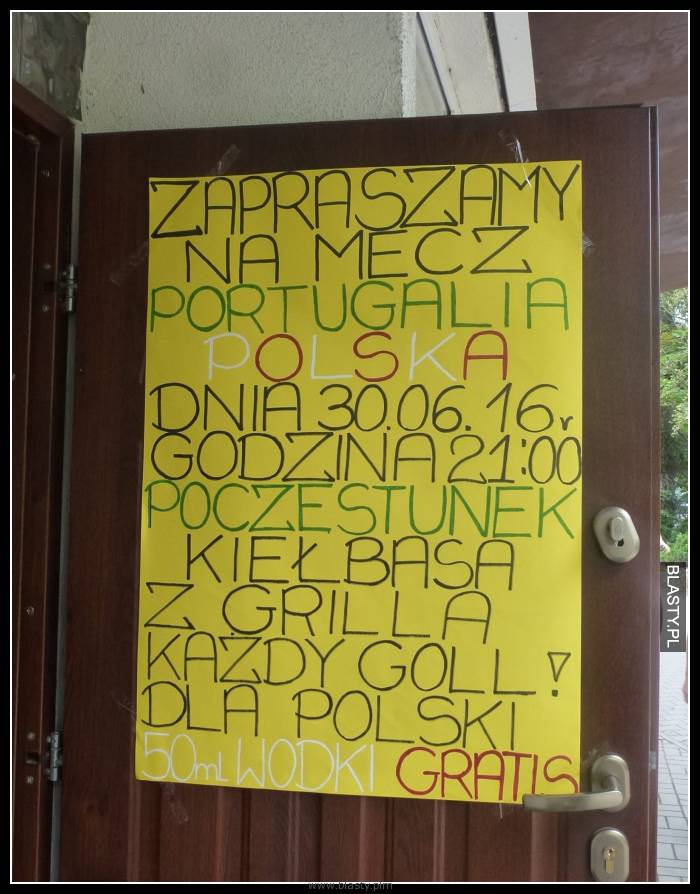 ZAPRASZAMY
NA MECZ
PORTUGALIA
POLSKA
DNIA 30.06.16r
GODZINA 21:00
POCZESTUNEK
KIEŁBASA
Z GRILLA
KAŻDY GOLL!
DLA POLSKI
50ml WODKI GRATIS
BLASTY.PL
www.blasty.pl